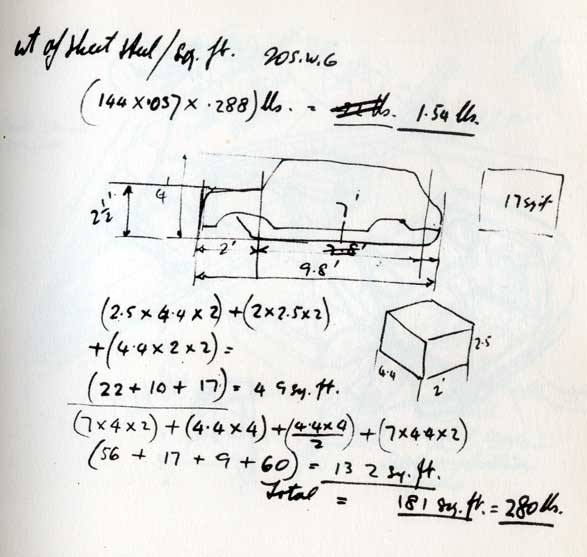 wt of sheet steel / sq. ft. 20 S.W.G
(144 × .037 × .288) lbs. = lbs. 1.54 lbs.
4'
2½'
7'
2'
9.8'
17 sq ft
(2.5 × 4.4 × 2) + (2 × 2.5 × 2)
+ (4.4 × 2 × 2) =
(22 + 10 + 17) = 49 sq. ft.
2.5
4.4
2'
(7×4×2) + (4.4×4) + (4.4×4)/2 + (7×4.4×2)
(56 + 17 + 9 + 60) = 132 sq. ft.
Total = 181 sq. ft. = 280 lbs.